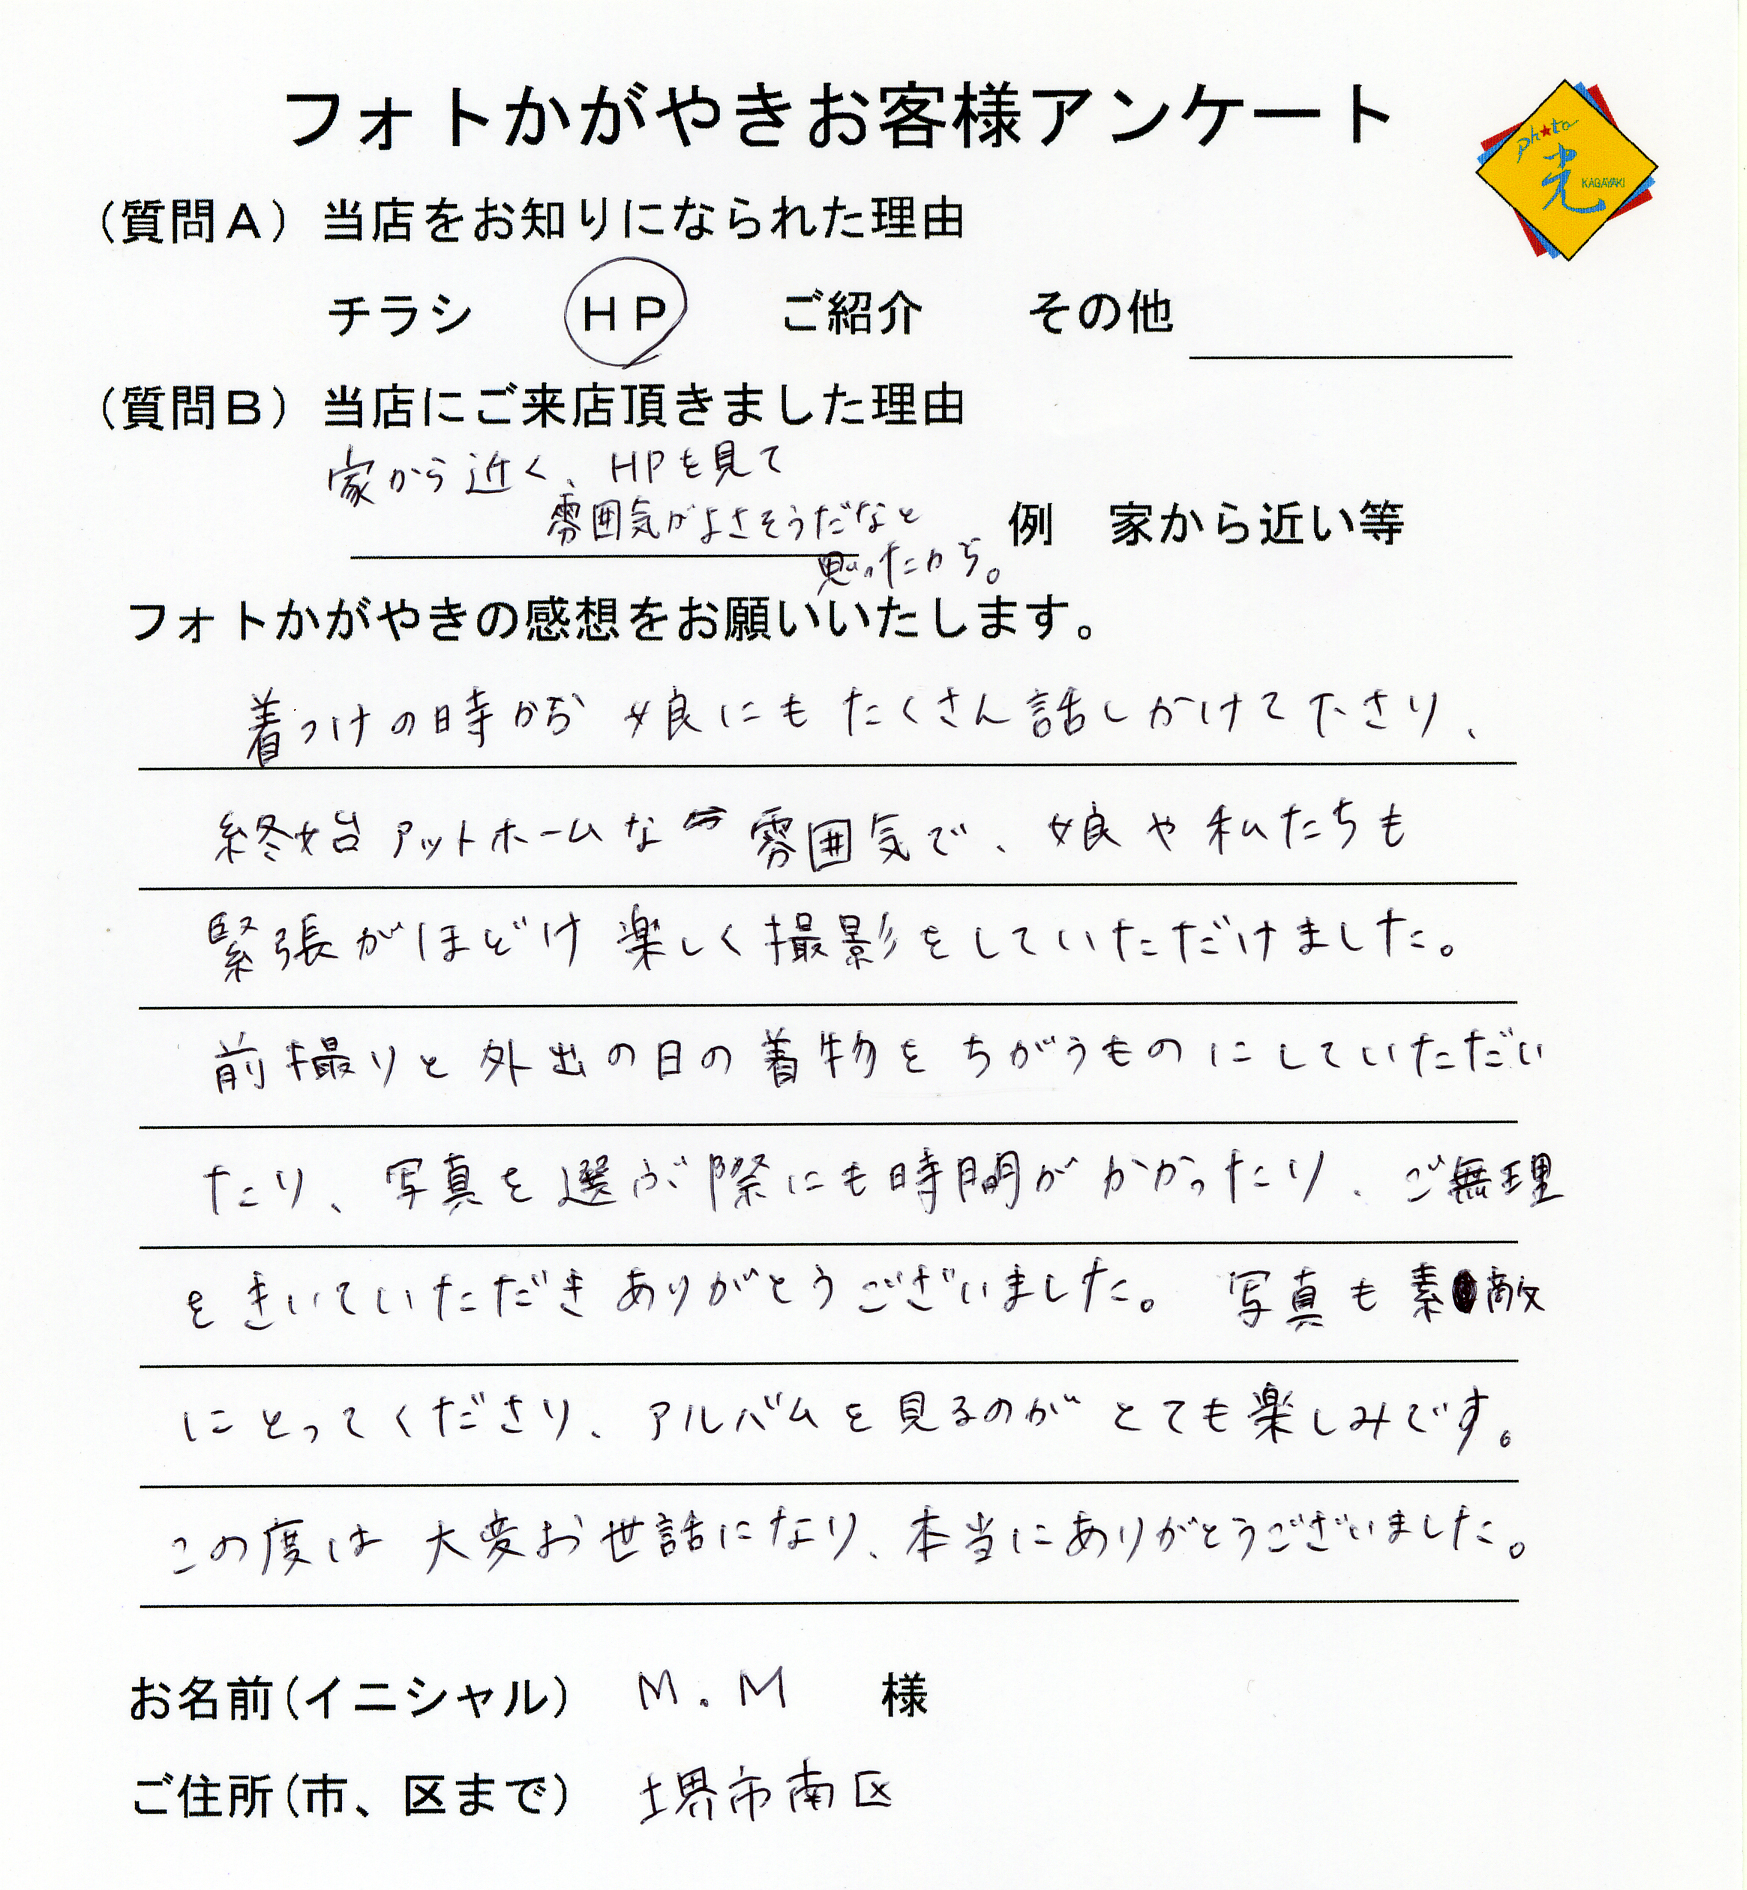 フォトかがやきお客様アンケート
photo
光
KAGAYAKI
(質問A) 当店をお知りになられた理由
チラシ HP ご紹介 その他
(質問B) 当店にご来店頂きました理由
家から近く、HPを見て
雰囲気がよさそうだなと
思ったから。
例 家から近い等
フォトかがやきの感想をお願いいたします。
着つけの時から娘にもたくさん話しかけて下さり、
終始アットホームな雰囲気で、娘や私たちも
緊張がほどけ楽しく撮影をしていただけました。
前撮りと外出の日の着物をちがうものにしていただい
たり、写真を選ぶ際にも時間がかかったり、ご無理
をきいていただきありがとうございました。写真も素敵
にとってくださり、アルバムを見るのがとても楽しみです。
この度は大変お世話になり、本当にありがとうございました。
お名前(イニシャル) M.M 様
ご住所(市、区まで) 堺市南区